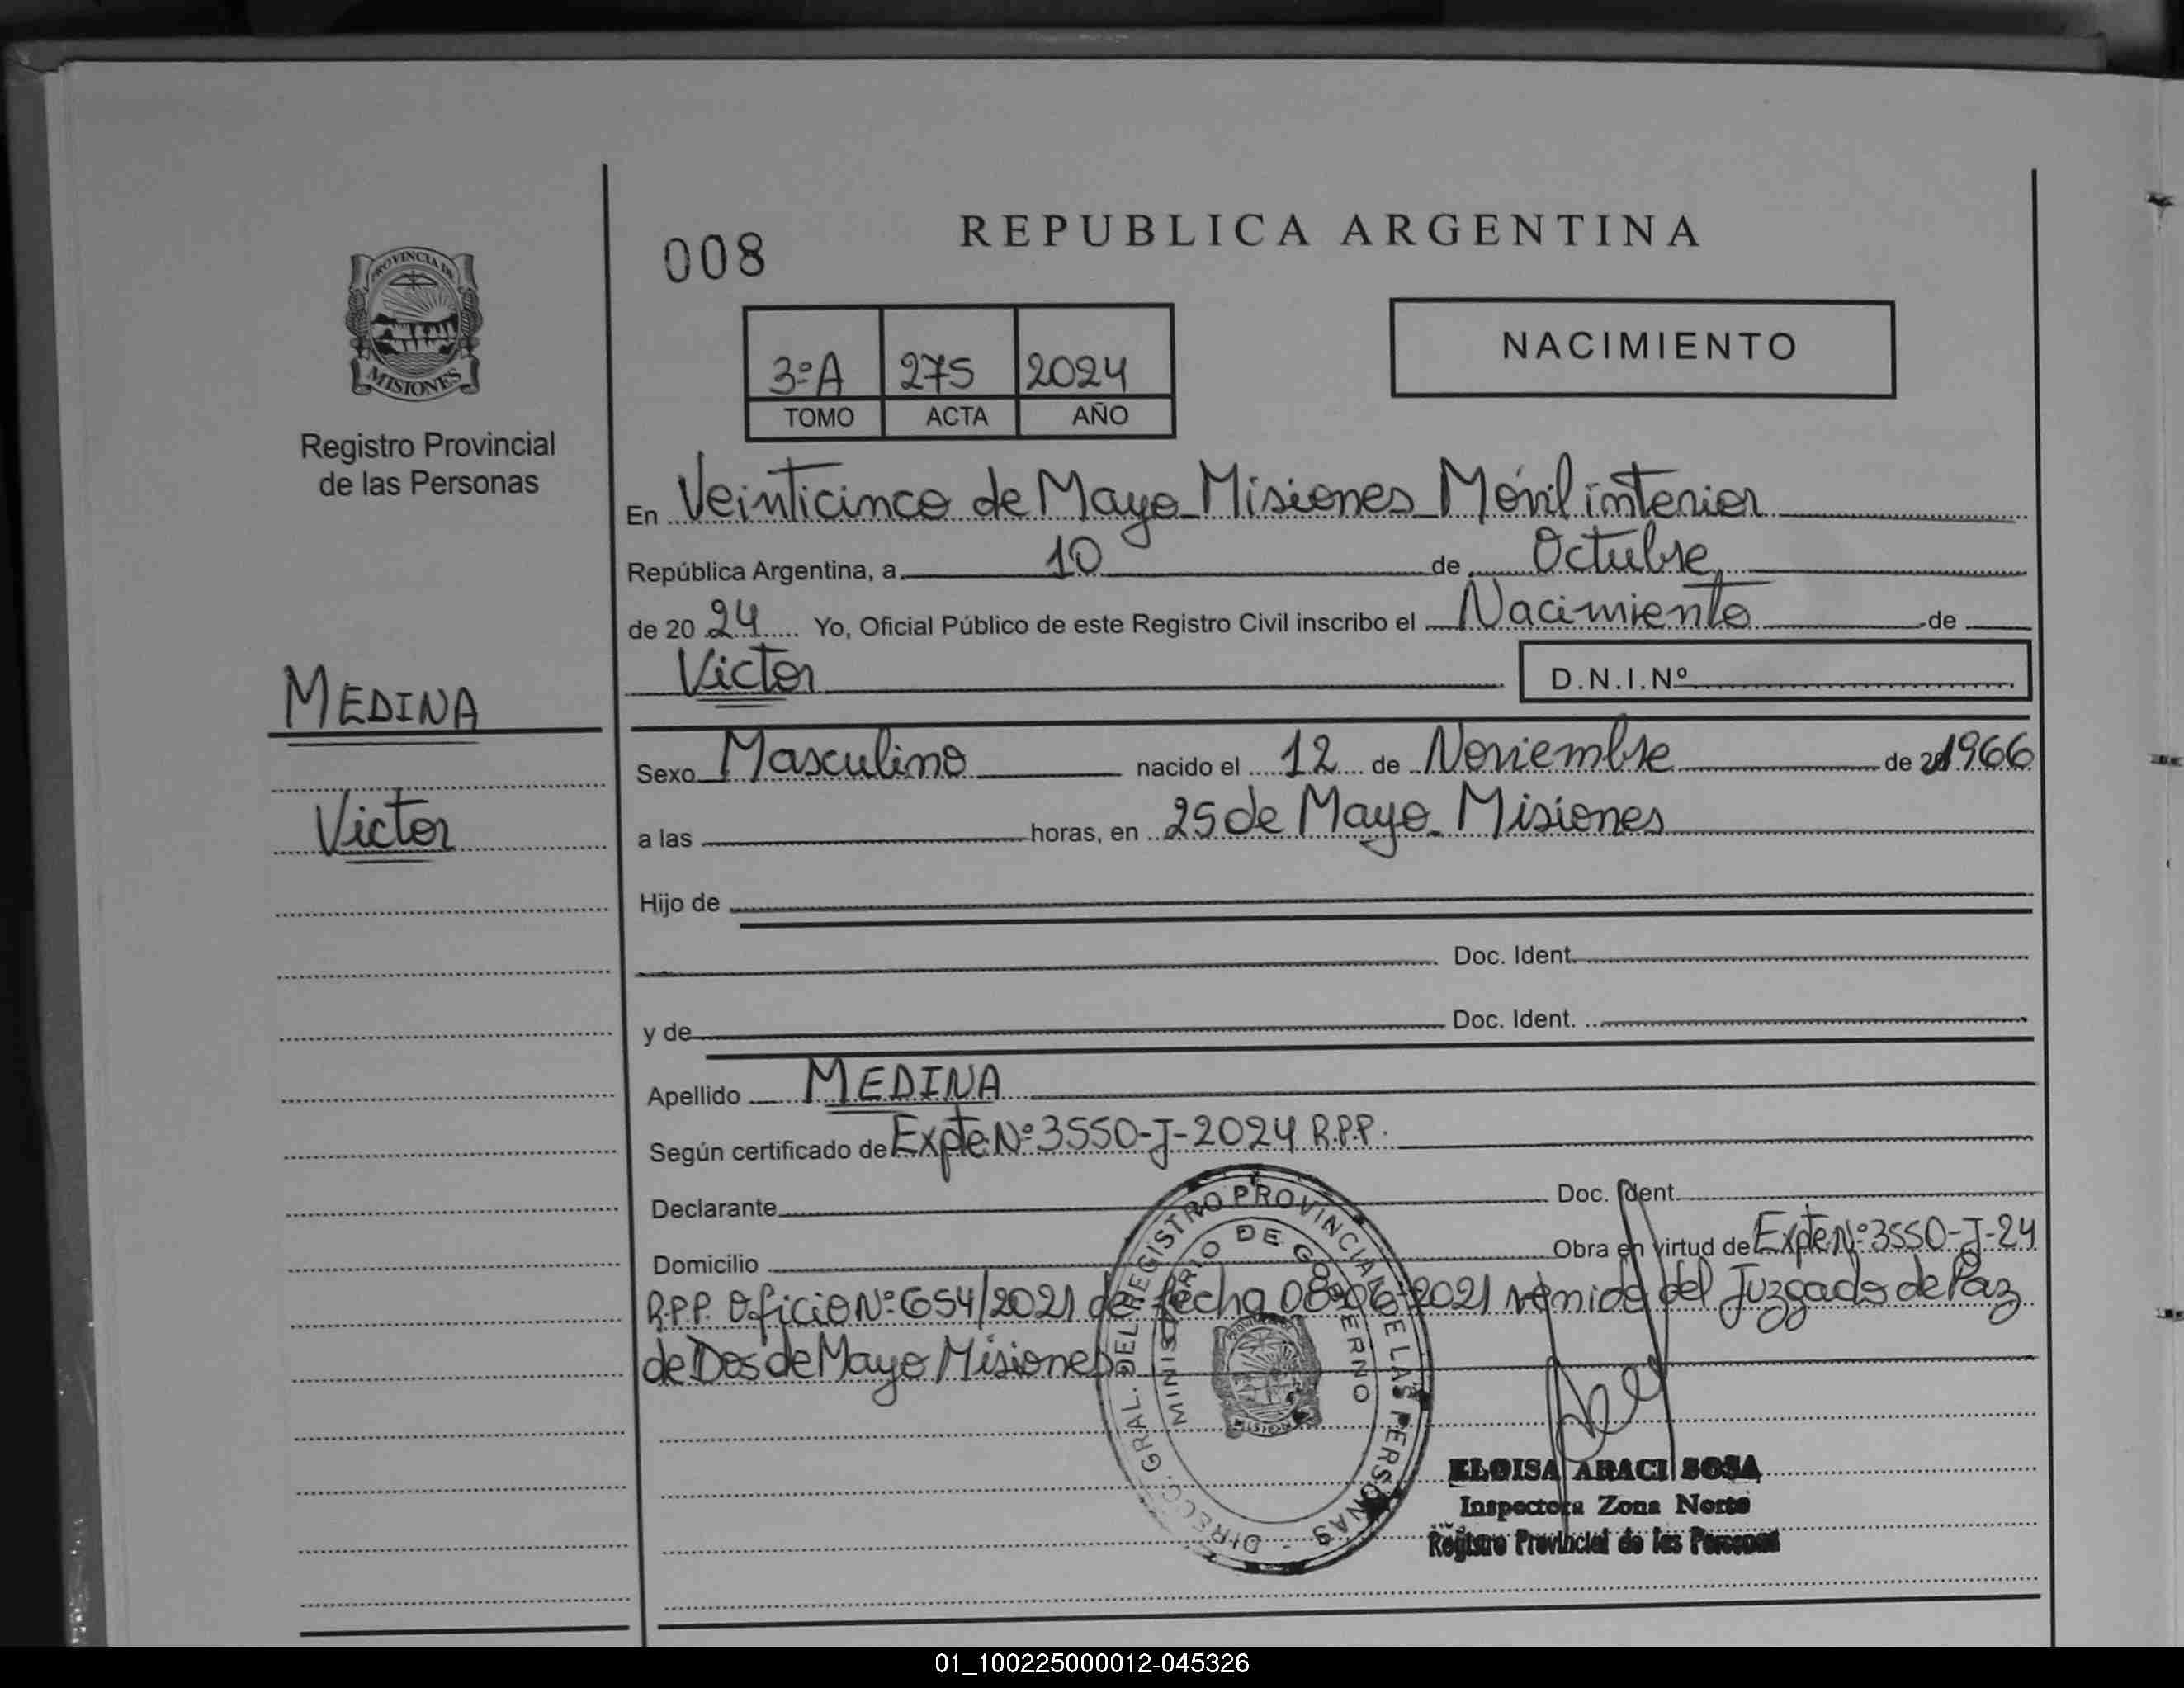 REPUBLICA ARGENTINA
008
PROVINCIA DE
MISIONES
Registro Provincial
de las Personas
3ºA 275 2024
TOMO ACTA AÑO
NACIMIENTO
En Veinticinco de Mayo Misiones Móvil interior
República Argentina, a 10 de Octubre
de 20 24 Yo, Oficial Público de este Registro Civil inscribo el Nacimiento de
Victor D.N.I.Nº
MEDINA
Victor
Sexo Masculino nacido el 12 de Noviembre de 1966
a las horas, en 25 de Mayo Misiones
Hijo de
Doc. Ident.
y de Doc. Ident.
Apellido MEDINA
Según certificado de Expte Nº 3550-J-2024 R.P.P.
Declarante Doc. Ident.
Domicilio Obra en virtud de Expte Nº 3550-J-24
R.P.P. Oficio Nº 654/2021 de fecha 08-06-2021 venido del Juzgado de Paz
de Dos de Mayo Misiones
DIRECC. GRAL. DEL REGISTRO PROVINCIAL DE LAS PERSONAS
MINISTERIO DE GOBIERNO
ELOISA ARACI SOSA
Inspectora Zona Norte
Registro Provincial de las Personas
01_100225000012-045326